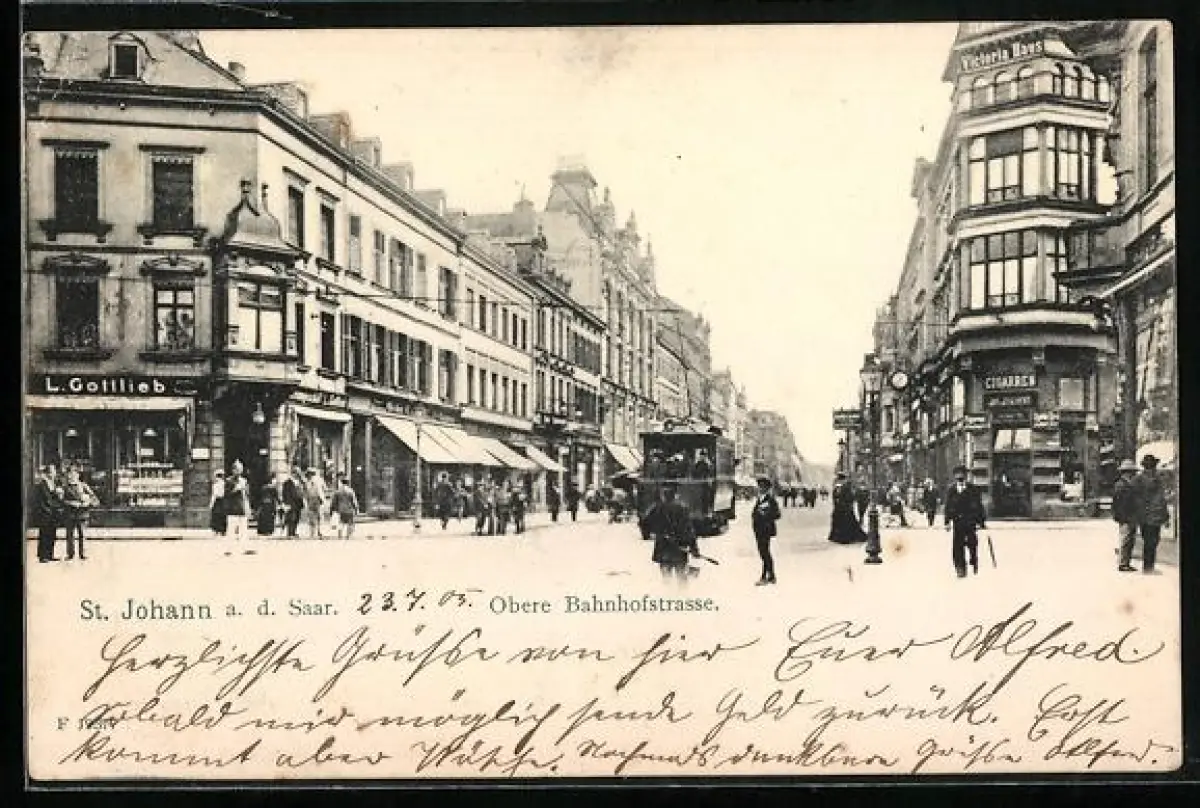 Victoria Haus
L. Gottlieb
CIGARREN
St. Johann a. d. Saar. 23.7.05. Obere Bahnhofstrasse.
Herzlichste Grüsse von hier Euer Alfred.
Sobald mir möglich sende Geld zurück. Erst
F
kommt aber Wäsche. Nochmals dankbare Grüsse Alfred.